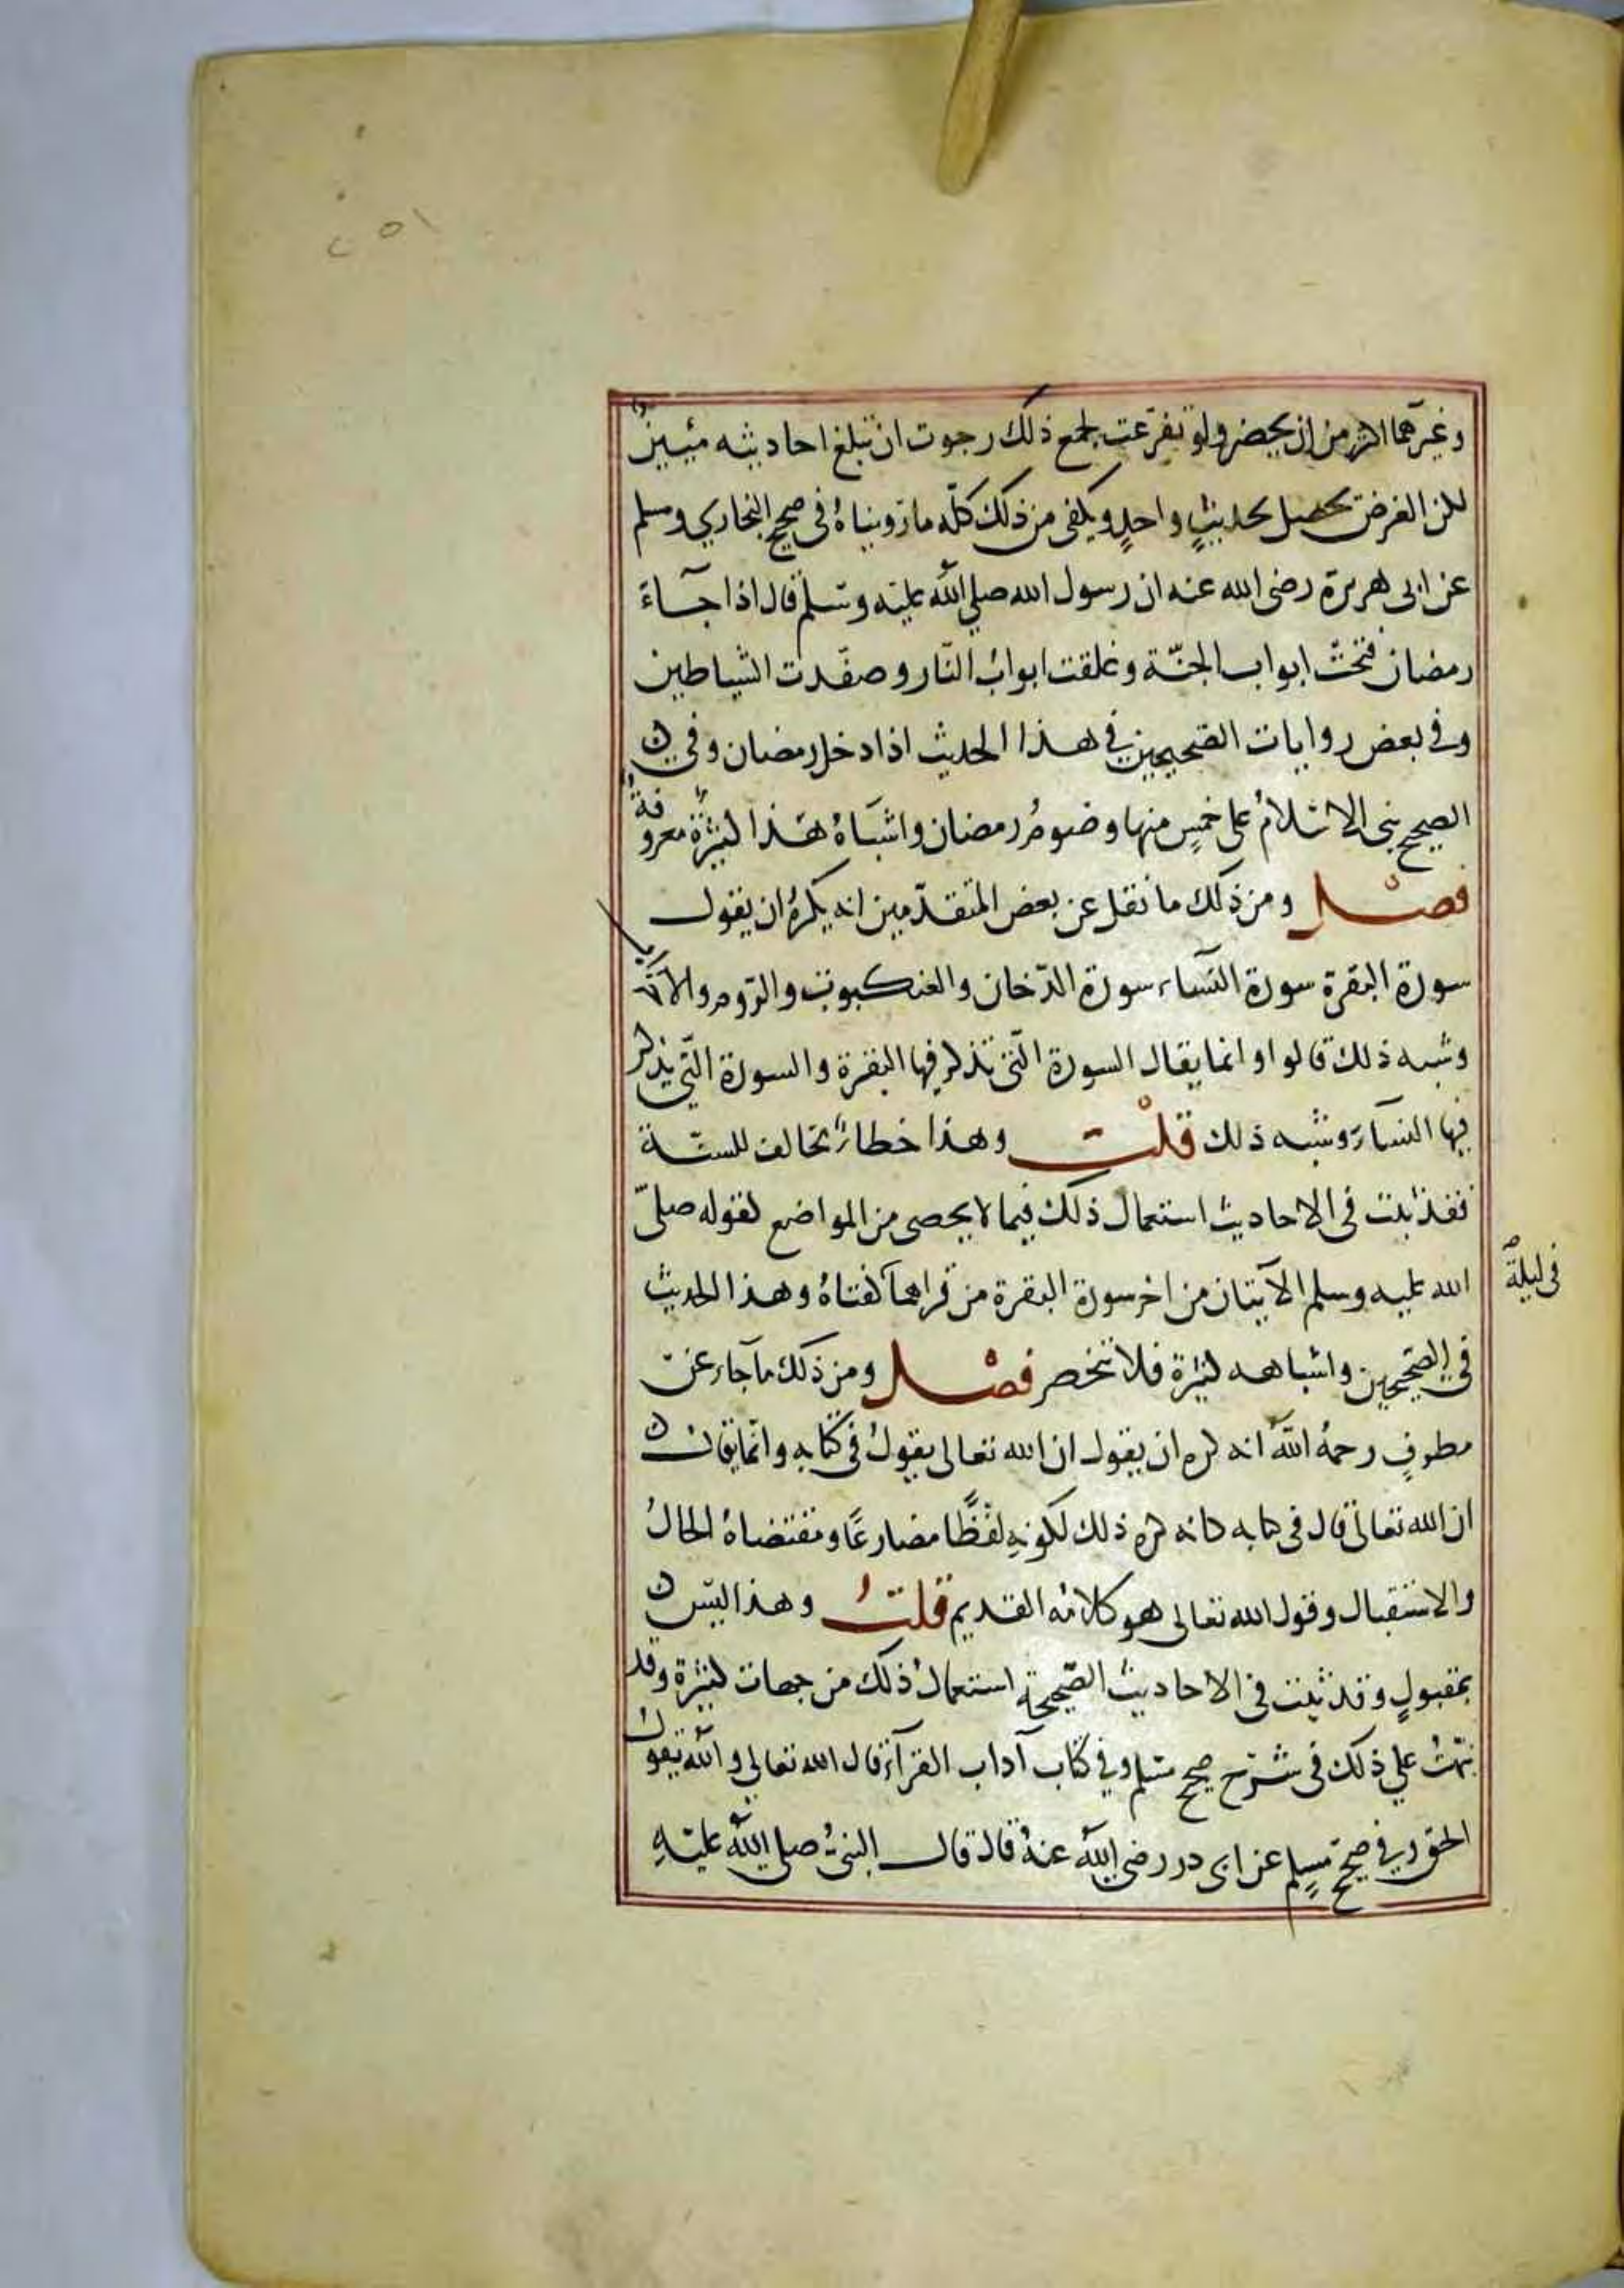 ٢٥١
وغيرهما اكثر من ان يحضر ولو تفرغت لجمع ذلك رجوت ان تبلغ احاديثه مئيين
لكن الغرض يحصل بحديثٍ واحدٍ ويكفى من ذلك كلّه ما روينياهُ فى صحيح البخاري ومسلم
عن ابى هريرة رضى الله عنه ان رسول الله صلي الله عليه وسلم قال اذا جآء
رمضان فتحتّ ابواب الجنّة وغلقت ابوابُ النّار وصفّدت الشياطين
وفى بعض روايات الصّحيحين في هذا الحديث اذا دخل رمضان وفي
الصحيح بنى الاسلامُ على خمسٍ منها وصومُ رمضان واشباهُ هذا كثيرةٌ معروفةٌ
فصل ومن ذلك ما نقل عن بعض المتقدّمين انه يكرهُ ان يقول
سورة البقرة سورة النسآء سورة الدّخان والعنكبوت والرّوم والاحزاب
وشبه ذلك قالوا وانما يقال السورة الّتى تذكر فيها البقرة والسورة الّتي يذكر
فيها النسآء وشبه ذلك قلت وهذا خطاءٌ تخالف للسنّة
فقد ثبت فى الاحاديث استعمال ذلك فيما لا يحصى من المواضع لقوله صلّى
الله عليه وسلم الآيتان من اخر سورة البقرة من قراهما كفتاهُ وهذا الحديث
فى ليلة
فى الصّحيحين واشباهه كثيرة فلا تنحصر فصل ومن ذلك ما جآء عن
مطرفٍ رحمهُ اللهُ انه كره ان يقول ان الله تعالى يقولُ فى كتابه وانّما يقال
ان الله تعالى قال فى كتابه كانه كره ذلك لكونهِ لفظًا مضارعًا ومقتضاهُ الحالُ
والاستقبال وقول الله تعالى هو كلامُه القديم قلتُ وهذا ليس
بمقبولٍ وقد ثبت فى الاحاديث الصّحيحة استعمالُ ذلك من جهات كثيرة وقد
نبّهتُ علي ذلك فى شرح صحيح مسلم وفي كتاب آداب القرآن قال الله تعالى والله يقولُ
الحق وفي صحيح مسلمٍ عن ابى در رضى اللهُ عنهُ قال قال النبىُّ صلى اللهُ عليهِ